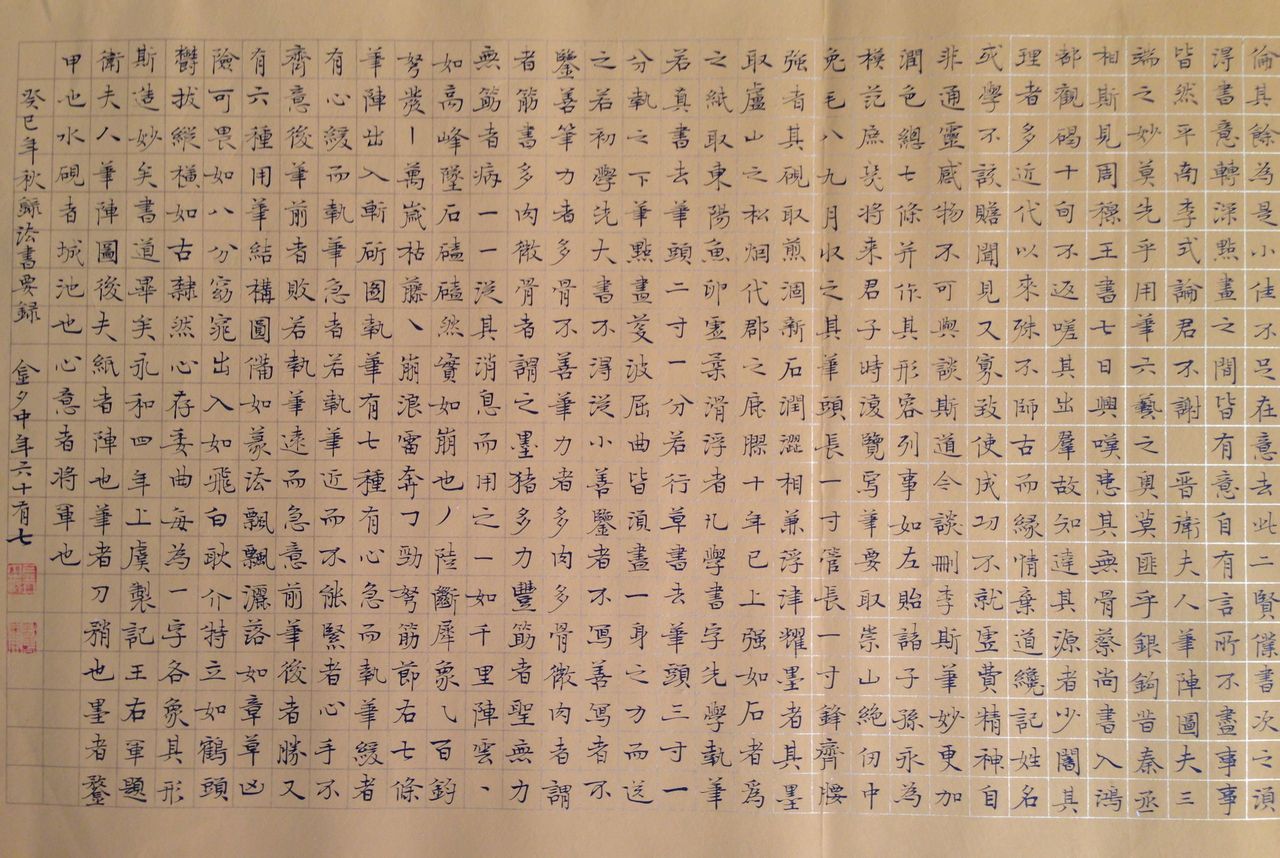 倫其餘為是小佳不足在意去此二賢僕書次之須
得書意轉深點畫之間皆有意自有言所不盡事事
皆然平南李式論君不謝 晉衛夫人筆陣圖夫三
端之妙莫先乎用筆六藝之奧莫匪乎銀鉤昔秦丞
相斯見周穆王書七日興嘆患其無骨蔡尚書入鴻
都觀碣十旬不返嗟其出羣故知達其源者少闇其
理者多近代以來殊不師古而緣情棄道纔記姓名
或學不該贍聞見又寡致使成功不就虛費精神自
非通靈感物不可與談斯道今談刪李斯筆妙更加
潤色總七條并作其形容列事如左貽諸子孫永為
模范庶幾將來君子時復覽寫筆要取崇山絕仞中
兔毛八九月收之其筆頭長一寸管長一寸鋒齊腰
強者其硯取煎涸新石潤澀相兼浮津耀墨者其墨
取廬山之松烟代郡之鹿膠十年已上强如石者為
之紙取東陽魚卵虛柔滑淨者凡學書字先學執筆
若真書去筆頭二寸一分若行草書去筆頭三寸一
分執之下筆點畫芟波屈曲皆須盡一身之力而送
之若初學先大書不得從小善鑒者不寫善寫者不
鑒善筆力者多骨不善筆力者多肉多骨微肉者謂
者筋書多肉微骨者謂之墨猪多力豐筋者聖無力
無筋者病一一從其消息而用之一如千里陣雲丶
如高峰墜石磕磕然實如崩也丿陸斷犀象乀百鈞
弩發丨萬歲枯藤乀崩浪雷奔㇆勁弩筋節右七條
筆陣出入斬斫圖執筆有七種有心急而執筆緩者
有心緩而執筆急者若執筆近而不能緊者心手不
齊意後筆前者敗若執筆遠而急意前筆後者勝又
有六種用筆結構圖備如篆法飄飄灑落如章草凶
險可畏如八分窈窕出入如飛白耿介特立如鶴頭
鬱拔縱橫如古隸然心存委曲每為一字各象其形
斯造妙矣書道畢矣永和四年上虞製記王右軍題
衛夫人筆陣圖後夫紙者陣也筆者刀矟也墨者鍪
甲也水硯者城池也心意者將軍也
癸巳年秋録法書要録 金夕中年六十有七